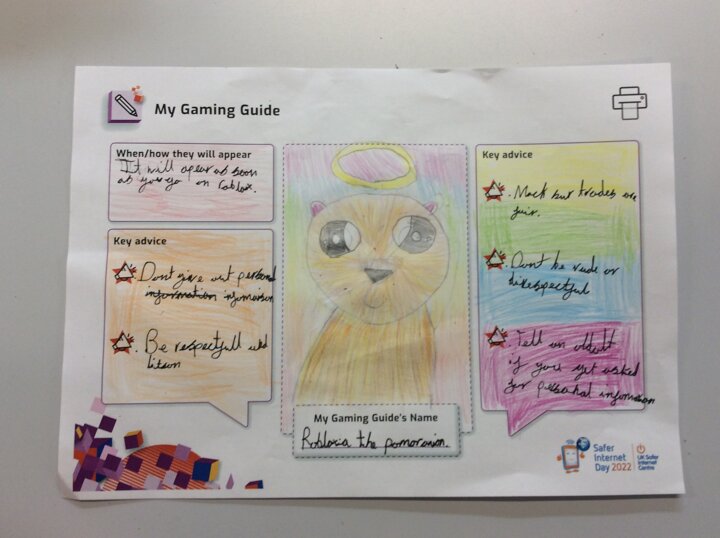 My Gaming Guide
When/how they will appear
It will apear as soon
as you go on
Key advice
Dont give out personal
information infomaison
Be respectfull and
litson
My Gaming Guide's Name
Robloxia the pomoranian.
Key advice
sure trades are
fair.
Dont be rude or
disrespectful
Tell an
if you get asked
for personal information
Safer
Internet
Day 2022
UK Safer
Internet
Centre